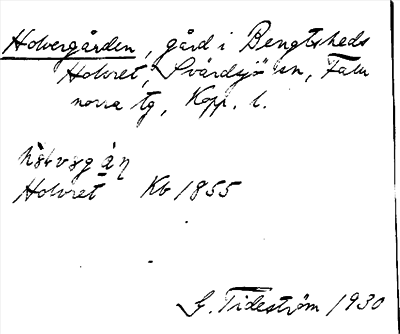 Holvergården, gård i Bengtsheds
Holvret, Svärdsjö sn, Falu
norra tg, Kopp. l.
Holvret Kb 1855
G. Tideström 1930